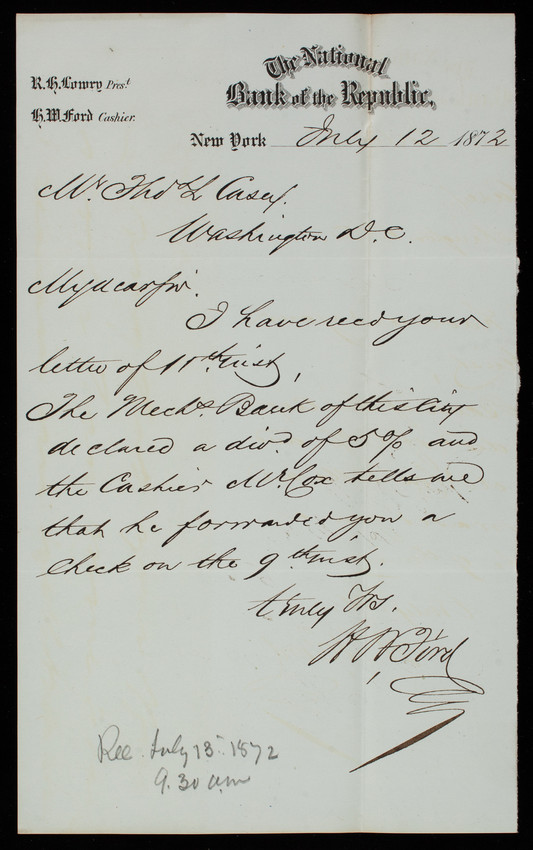 The National
Bank of the Republic,
R.H. Lowry Pres.t
H.W. Ford Cashier.
New York July 12 1872
Mr Tho L Casey.
Washington D.C.
My dear Sir.
I have recd your
letter of 11th inst,
The Mechs. Bank of this City
declared a divd. of 5% and
the Cashier Mr. Cox tells me
that he forwarded you a
check on the 9th inst.
truly Yrs.
H W Ford
Rec. July 13. 1872
9.30 am